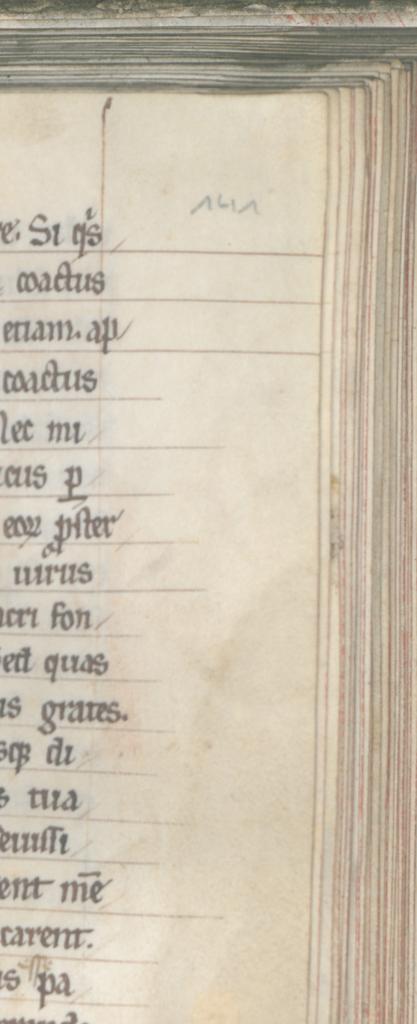 1611
e. Si q̇s
coactus
etiam. ap
coactus
Nec mi
cus p̱
eoꝝ pſter
uirtus
acri fon
ſed quas
us grates.
sqꝫ di
s tua
ſeuiſſi
ent m̄e
carent.
us pa